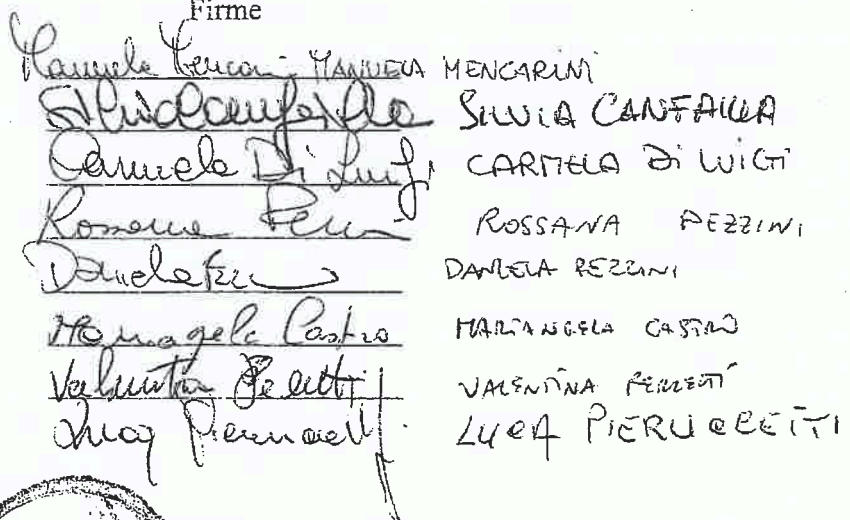 Firme
Manuela Mencarini MANUELA MENCARINI
Silvia Canfailla SILVIA CANFAILLA
Carmela Di Luigi CARMELA Di LUIGI
Rossana ROSSANA PEZZINI
Daniela DANIELA PEZZINI
Mariangela Castro MARIANGELA CASTRO
Valentina VALENTINA
Luca Pieruccetti LUCA PIERUCCETTI